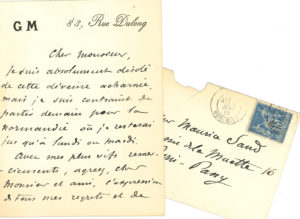 GM 83, Rue Dulong
Cher Monsieur,
Je suis absolument désolé
de cette déveine acharnée,
mais je suis contraint de
partir demain pour la
Normandie où je resterai
jusqu'à lundi ou mardi.
Avec mes plus vifs remer-
ciements, agréez, cher
Monsieur et ami, l'expression
de tous mes regrets et de
Maurice Sand
la Muette 16
Passy